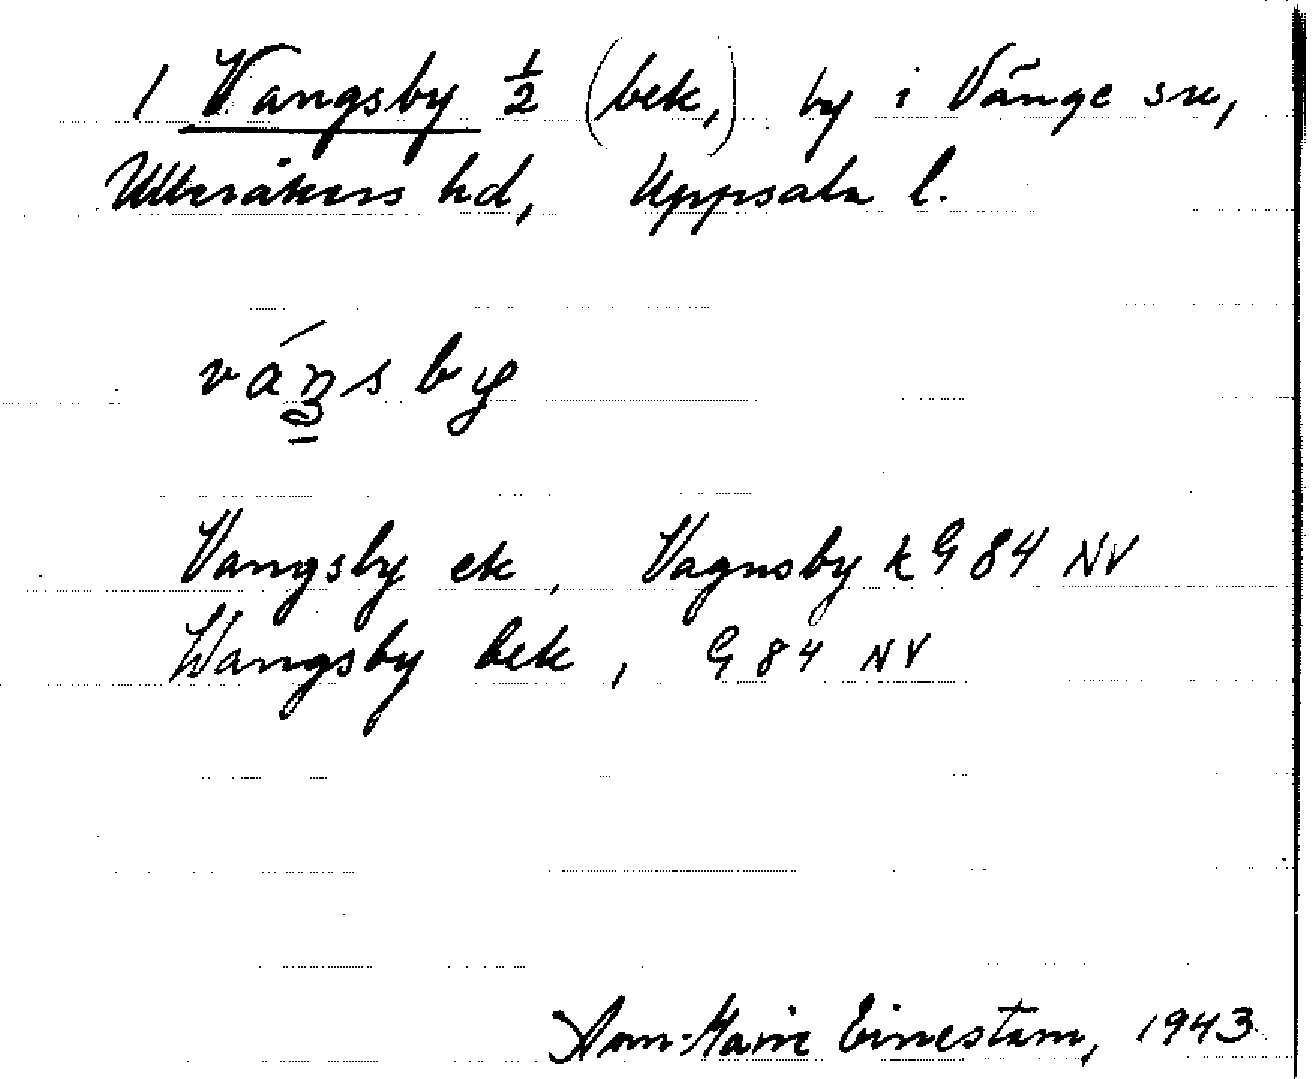 1 Vangsby ½ (bek,) by i Vänge sn,
Ulleråkers hd, Uppsala l.
váŋsby
Vangsby ek, Vagnsby k G 84 NV
Wangsby bek, G 84 NV
Ann-Marie Einestam, 1943